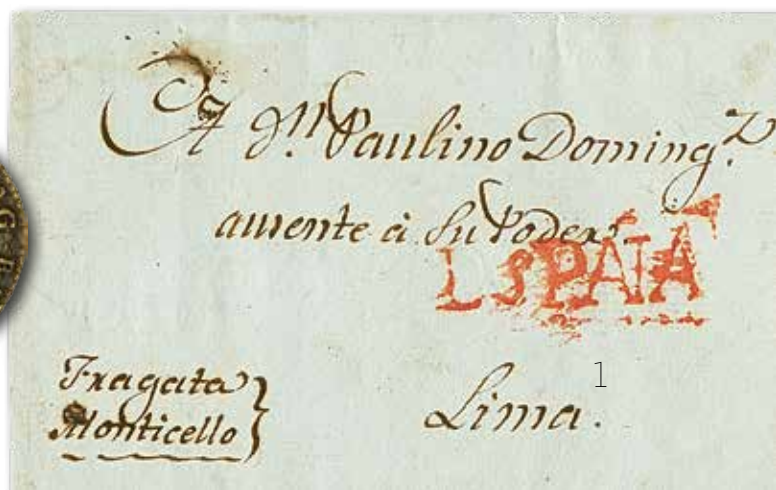 A Dn. Paulino Doming.z
ausente á Su Poder
ESPAÑA
Fragata
Monticello
Lima.
1